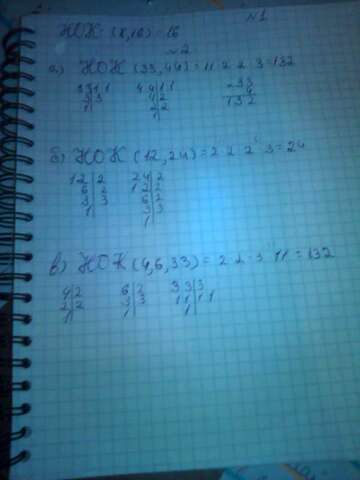 №1
НОК (8,16) = 16
№2
а) НОК (33,44) = 11 2 2 3 = 132
33|11 44|11 33
3|3 4|2 4
1 2|2 132
1
б) НОК (12,24) = 2 2 2 3 = 24
12|2 24|2
6|2 12|2
3|3 6|2
1 3|3
1
в) НОК (4,6,33) = 2 2 3 11 = 132
4|2 6|2 33|3
2|2 3|3 11|11
1 1 1